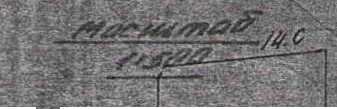 масштаб
1:500
14.0